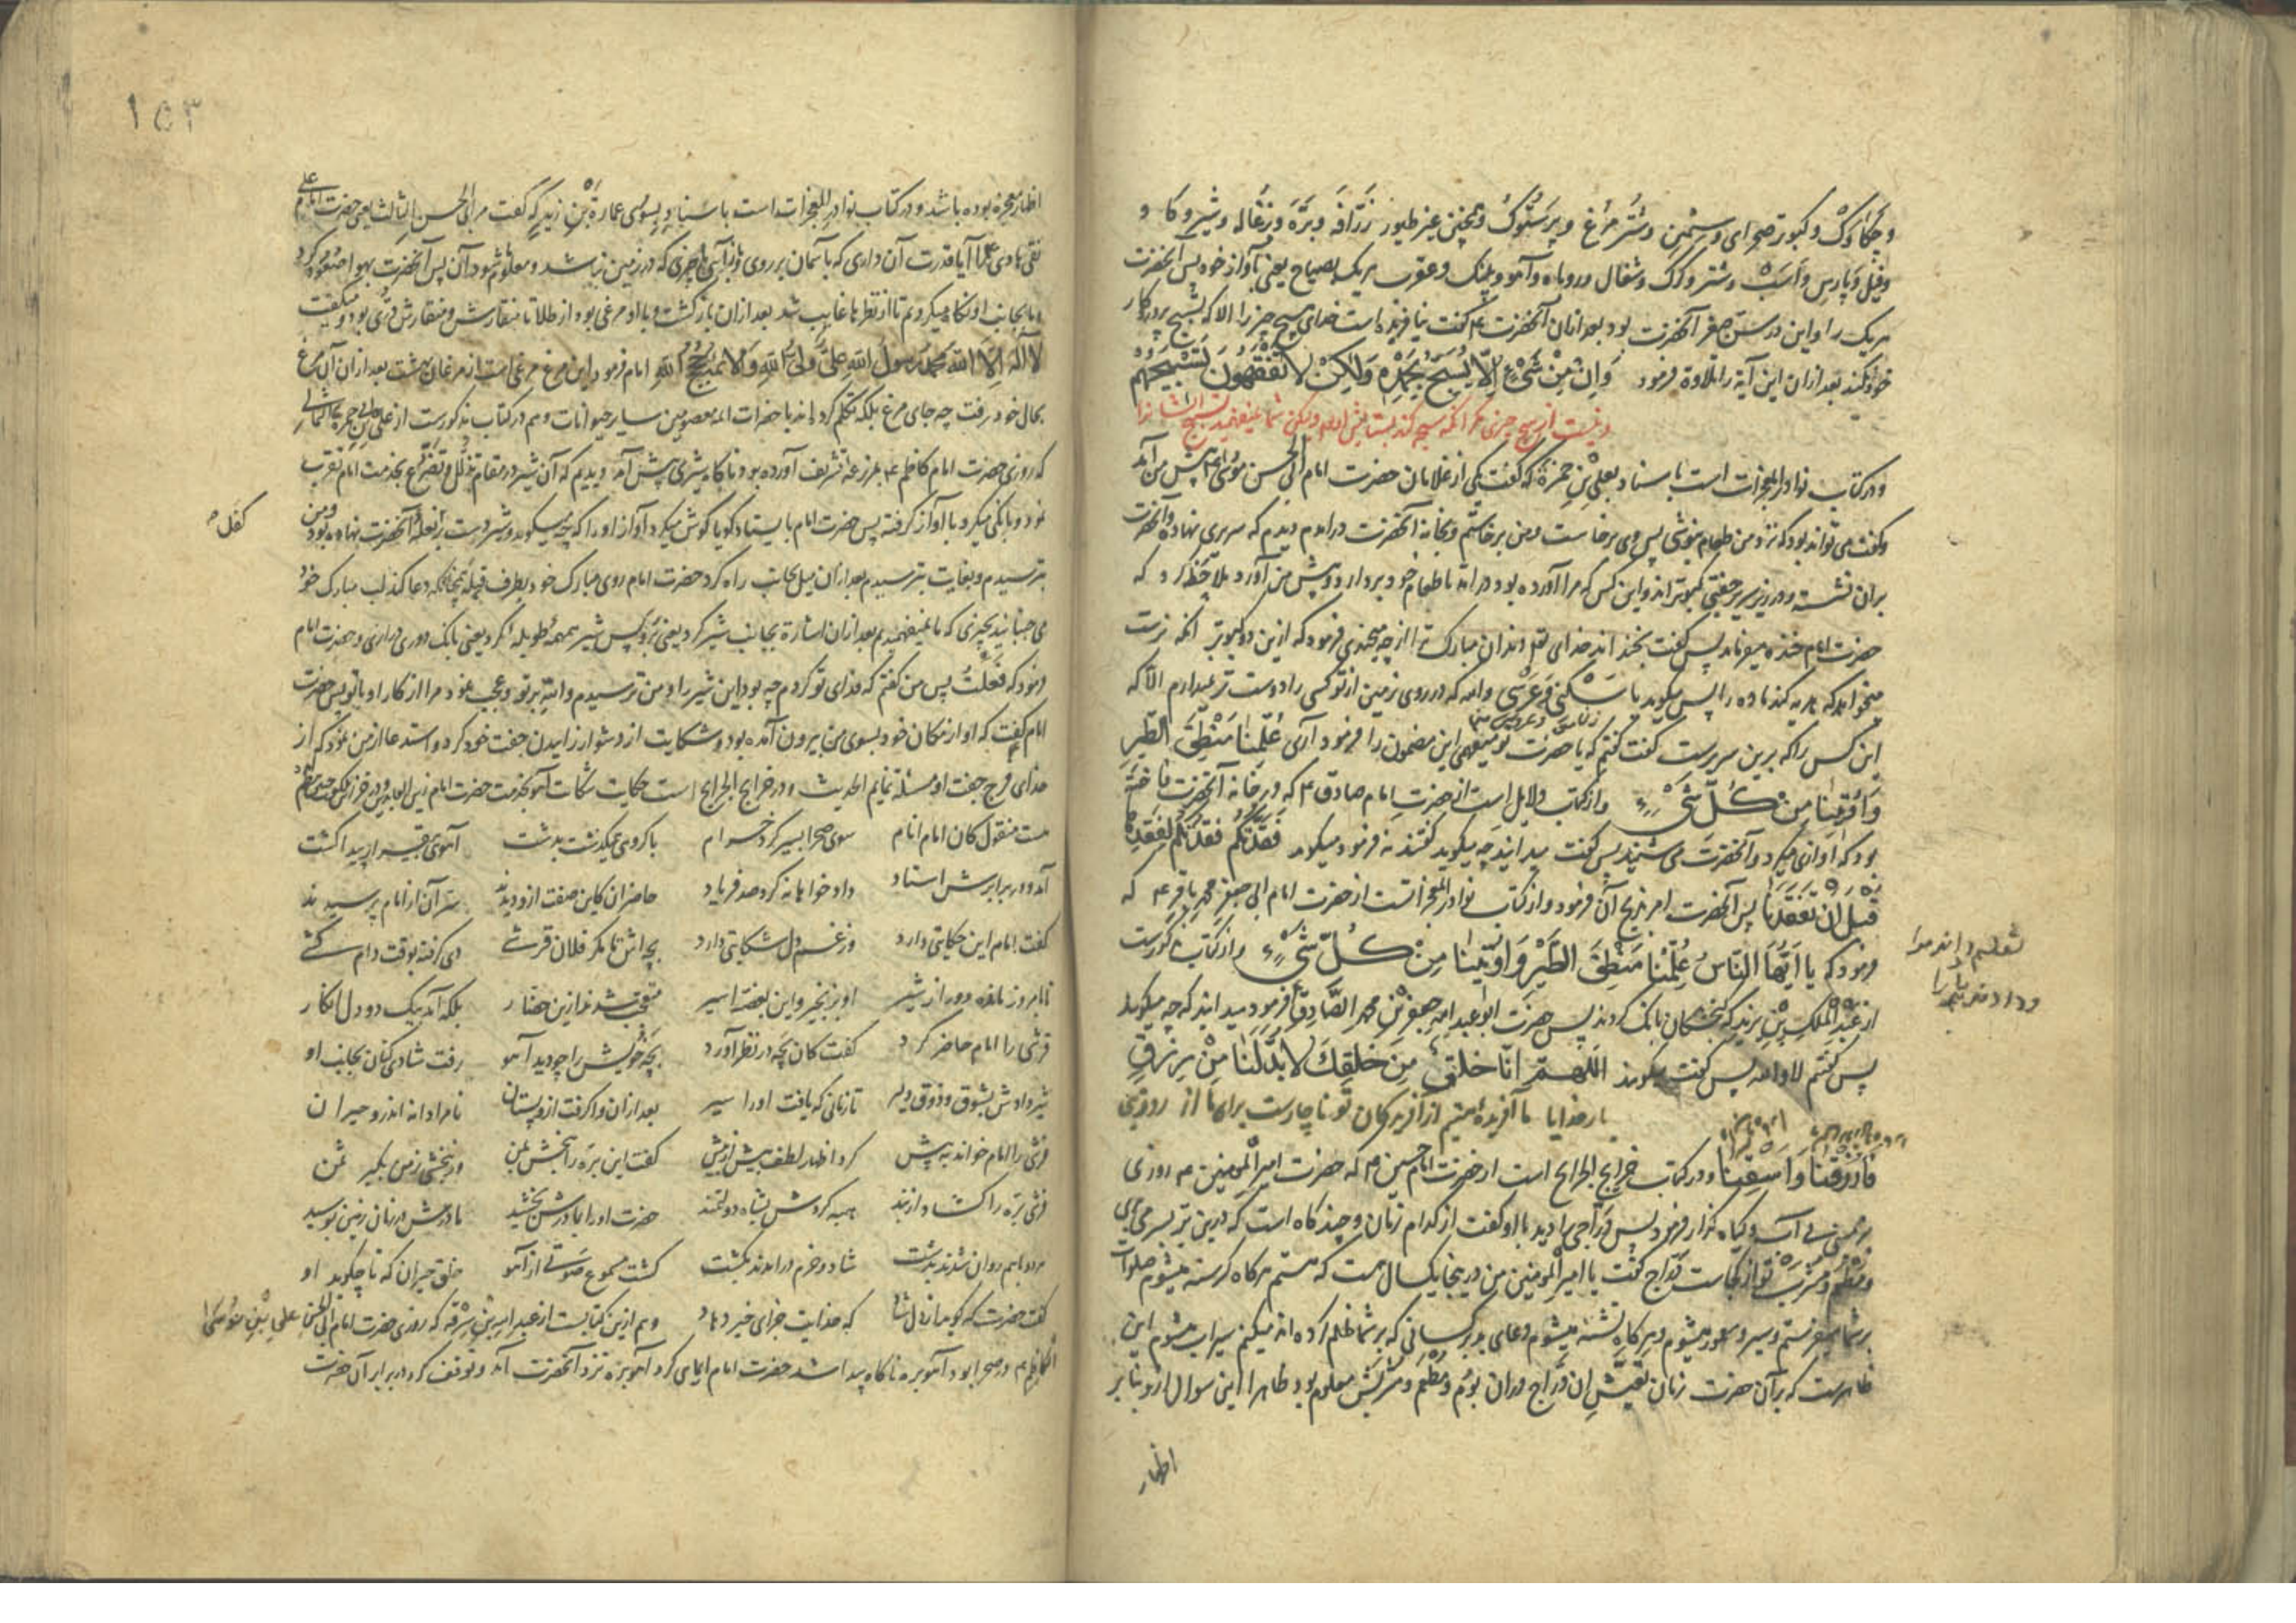 و چکاوک و کبوتر صحرای و سیمین و شتر مرغ و پرستوک و همچنین غیر طیور زرافه و بره و بزغاله و شیر و کاو
و فیل و پارس و اسب و شتر و کرک و شغال و روباه و آهو و پلنک و عقرب هریک بصیاح یعنی بآواز خود پس آنحضرت
هریک را و این در سن صغر آنحضرت بود بعد ازان آنحضرت ع کفت نیافریده است خدای هیچ چیز را الا که تسبیح پروردکار
خود کند بعد ازان این آیة را تلاوة فرمود وَاِنْ مِنْ شَیْءٍ اِلّا یُسَبِّحُ بِحَمْدِهِ وَلٰکِنْ لا تَفْقَهُونَ تَسْبِیحَهُمْ
و نیست از هیچ چیزی مکر آنکه تسبیح کند ولکن شما نمیفهمید تسبیح ایشانرا
و در کتاب نوادر المعجزات است باسناد بعلی بن حمزة که کفت یکی از غلامان حضرت امام ابی الحسن موسی ع پیش من آمد
و کفت می تواند بود که نزد من طعام پس وی برخاست و من برخاستم و بخانه آنحضرت درامدم دیدم که سریری نهاده و آنحضرت
بران نشسته و در زیر سریر جفتی کبوتر اند و این کس که مرا آورده بود درامد تا طعام خود بردارد و پیش من آورد ملاحظه کرد که
حضرت امام خنده میفرماید پس کفت بخنداند خدای تعالی دندان مبارک ترا از چه میخندی فرمود که ازین دو کبوتر آنکه نرست
میخواهد که ماده را پس میکوید یا سَکَنی وَ عَرَسی والله که در روی زمین از تو کسی را دوست تر نمیدارم الا که
این کس را که برین سریرست کفت کفتم که یا حضرت تو میفهمی این مضمون را فرمود آری عُلِّمْنا مَنْطِقَ الطَّیْرِ
وَاُوتِینا مِنْ کُلِّ شَیْءٍ و از کتاب دلایل است از حضرت امام صادق ع که در خانه آنحضرت فاخته
بود که آوازی میکرد و آنحضرت می شنید پس کفت میدانید چه میکوید کفتند نه فرمود میکوید فَقَدْتُکُمْ فَقَدْتُکُمْ
قَبْلَ اَنْ تَفْقِدَنا پس آنحضرت امر بذبح آن فرمود و از کتاب نوادر المعجزاتست از حضرت امام ابی جعفر محمد باقر ع که
فرمود که یا اَیُّهَا النّاسُ عُلِّمْنا مَنْطِقَ الطَّیْرِ وَاُوتِینا مِنْ کُلِّ شَیْءٍ و از کتاب مذکورست
تعلیم داده اند ما را
از عبد الملک بن یزید که کنجشکان بانک کردند پس حضرت ابو عبد الله جعفر بن محمد الصادق ع فرمود میدانید که چه میکویند
پس کفتم لا والله پس کفت میکویند اللهم انا خلق مِن خلقِک لا بدّ لنا من رزقِ
بار خدایا ما آفریده ایم از آفریدکان تو ناچارست برای ما از روزی
فارزقنا واسقنا و در کتاب خرایج الجرایح است از حضرت امام حسین ع که حضرت امیر المومنین ع روزی
بزمینی بی آب و کیاه کذار فرمود پس درّاجی را دید با او کفت از کدام زمان و چند کاه است که درین بر بسر می بری
و مطعم و مشرب تو از کجاست درّاج کفت یا امیر المومنین من در ینجا یکسال هست که هستم هرکاه کرسنه میشوم صلوات
بر شما میفرستم و سیر میشوم و هرکاه تشنه میشوم دعای بد بر کسانی که بر شما ظلم کرده اند میکنم سیراب میشوم این
ظاهرست که بر آن حضرت زمان تعیّش آن درّاج دران بوم و مطعم و مشربش معلوم بود ظاهرا این سوال از و بنابر
اظهار
١٥٣
اظهار معجزه بوده باشد و در کتاب نوادر المعجزات است باسناد بسوی عمارة بن زید که کفت مر ابی الحسن الثالث یعنی حضرت امام علی
نقی هادی ع را آیا قدرت آن داری که بآسمان بر روی و بیاری چیزی که در زمین نباشد و معلوم شود آن پس آنحضرت بهوا صعود کرد
و ما بجانب او نکاه میکردیم تا از نظر ما غایب شد بعد ازان باز کشت و با او مرغی بود از طلا تا منقارش و منقارش درّی بود و میکفت
لا اله الا الله محمد رسول الله علی ولی الله امام فرمود این مرغ مرغی است از مرغان بهشت بعد ازان آن مرغ
بحال خود رفت چه جای مرغ بلکه تکلم کرده اند با حضرات ائمه معصومین سایر حیوانات و هم در کتاب مذکورست از علی بن حمزه
که روزی حضرت امام کاظم ع بمزرعه تشریف آورده بود ناکاه شیری پیش آمد دیدیم که آن شیر در مقام تذلل و تضرع بخدمت امام تقرب
نمود و بانکی میکرد با آواز کرفته پس حضرت امام بایستاد کویا کوش میکرد آواز او را که چه میکوید و شیر دست بر بغله آنحضرت نهاده بود و من
کفل
بترسیدم و بغایت بترسیدم بعد ازان میل بجانب راه کرد حضرت امام روی مبارک خود بطرف قبله همچنانکه دعا کند لب مبارک خود
می جنبانید بچیزی که ما نمیفهمیدیم بعد ازان اشارة بجانب شیر کرد یعنی برو پس شیر همهمه طویله کرد یعنی بانک دوری درازی و حضرت امام
فرمود که فَعَلتُ پس من کفتم که فدای تو کردم چه بود این شیر را و من ترسیدم والله بر تو و عجب نمود مرا از کار او با تو پس حضرت
امام کفت که او از مکان خود بسوی من بیرون آمده بود و شکایت از دشوار زاییدن جفت خود کرد و استدعا از من نمود که از
خدای فرج جفت او مسئلة نمایم الحدیث و در خرایج الجرایح است حکایت شکایت آهو بخدمت حضرت امام زین العابدین
هست منقول کان امام انام سوی صحرا بسیر کرد خرام با کروهی میکذشت بدشت آهوی پیدا کشت
آمد و در برابرش استاد داد خواهانه کرد صد فریاد حاضران کاین صفت ازو دیدند سرّ آن از امام پرسیدند
کفت امام این حکایتی دارد وز غم دل شکایتی دارد بچه اش را مکر فلان قرشی دی کرفته بوقت دام کشی
تا بامروز مانده دور از شیر او بزنجیر و این بغصه اسیر متعجب شدند ازین حضار بلکه آمد بیک دو دل انکار
قرشی را امام حاضر کرد کفت کان بچه در نظر آورد بچه خویش را چو دید آهو رفت شادی کنان بجانب او
شیر دادش بشوق و ذوق دلیر تا زمانی که یافت او را سیر بعد ازان وا کرفت ازو پستان نامرادانه اندرو حیران
قرشی را امام خواند به پیش کرد اظهار لطف بیش از پیش کفت این بره را ببخش بمن ور نبخشی ز من بکیر ثمن
قرشی بره را کشاد از بند هبه کردش بشاه دولتمند حضرت او را بمادرش بخشید مادرش در زمان زمین بوسید
هردو باهم روان شدند بدشت شاد و خرم درامدند بکشت کشت مسموع صوتی از آهو خلق حیران که تا چه کوید او
کفت حضرت که کوید از دل شاد که خدایت جزای خیر دهاد و هم ازین کتابست از عبد الله بن که روزی حضرت امام ابی الحسن علی بن موسی
ع در صحرا بود آهو بره ناکاه پیدا شد حضرت امام ایمای کرد آهو بره نزد آنحضرت آمد و توقف کرد در برابر آن حضرت